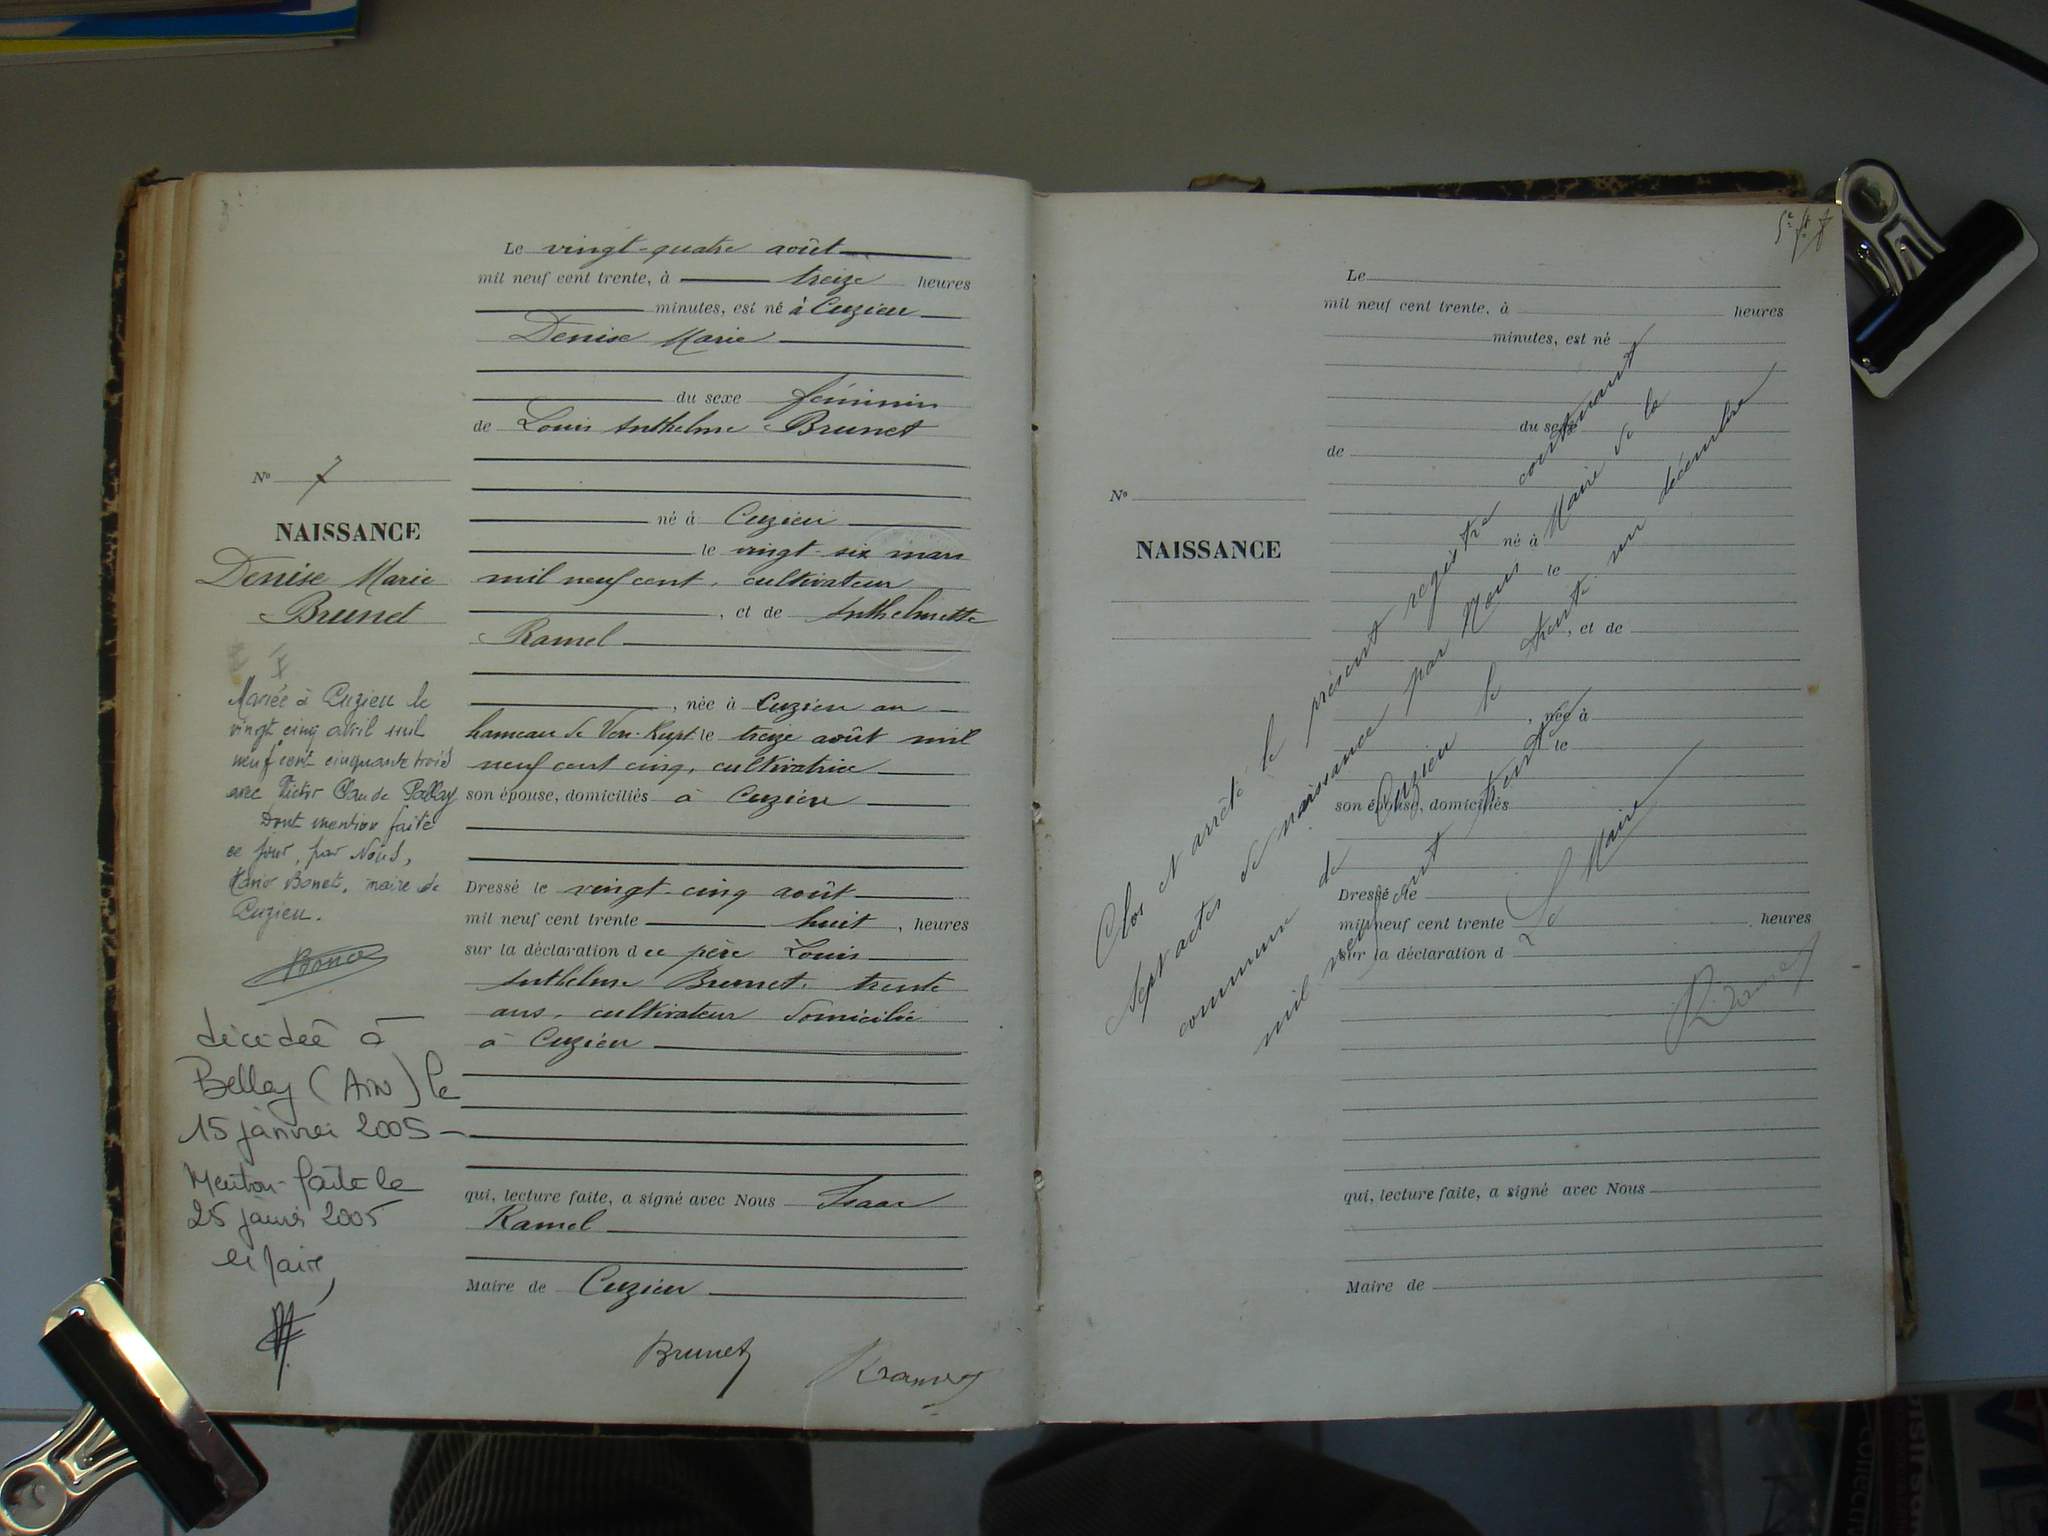 Le vingt-quatre août
mil neuf cent trente, à treize heures
minutes, est né à Cuzieu
Denise Marie
du sexe féminin
de Louis Anthelme Brunet
né à Cuzieu
le vingt-six mars
mil neuf cent, cultivateur
, et de Anthelmette
Ramel
, née à Cuzieu au
hameau de le treize août mil
neuf cent cinq, cultivatrice
son épouse, domiciliés à Cuzieu
Dressé le vingt-cinq août
mil neuf cent trente huit, heures
sur la déclaration du père Louis
Anthelme Brunet, trente
ans, cultivateur domicilié
à Cuzieu
qui, lecture faite, a signé avec Nous Isaac
Ramel
Maire de Cuzieu
Brunet
Ramel
No 7
NAISSANCE
Denise Marie
Brunet
Mariée à Cuzieu le
vingt cinq avril mil
neuf cent cinquante trois
avec Victor Claude
Dont mention faite
ce jour, par Nous,
Bonet, maire de
Cuzieu.
décédée à
Belley (Ain) le
15 janvier 2005 -
Mention faite le
25 janvier 2005
le Maire,
Le
mil neuf cent trente, à heures
minutes, est né
du sexe
de
né à
le
, et de
, née à
le
son épouse, domiciliés
Dressé le
mil neuf cent trente heures
sur la déclaration d
qui, lecture faite, a signé avec Nous
Maire de
No
NAISSANCE
Clos et arrêté le présent registre contenant
sept actes de naissance par Nous Maire de la
commune de Cuzieu le trente un décembre
mil neuf cent trente
Le Maire
Ramel